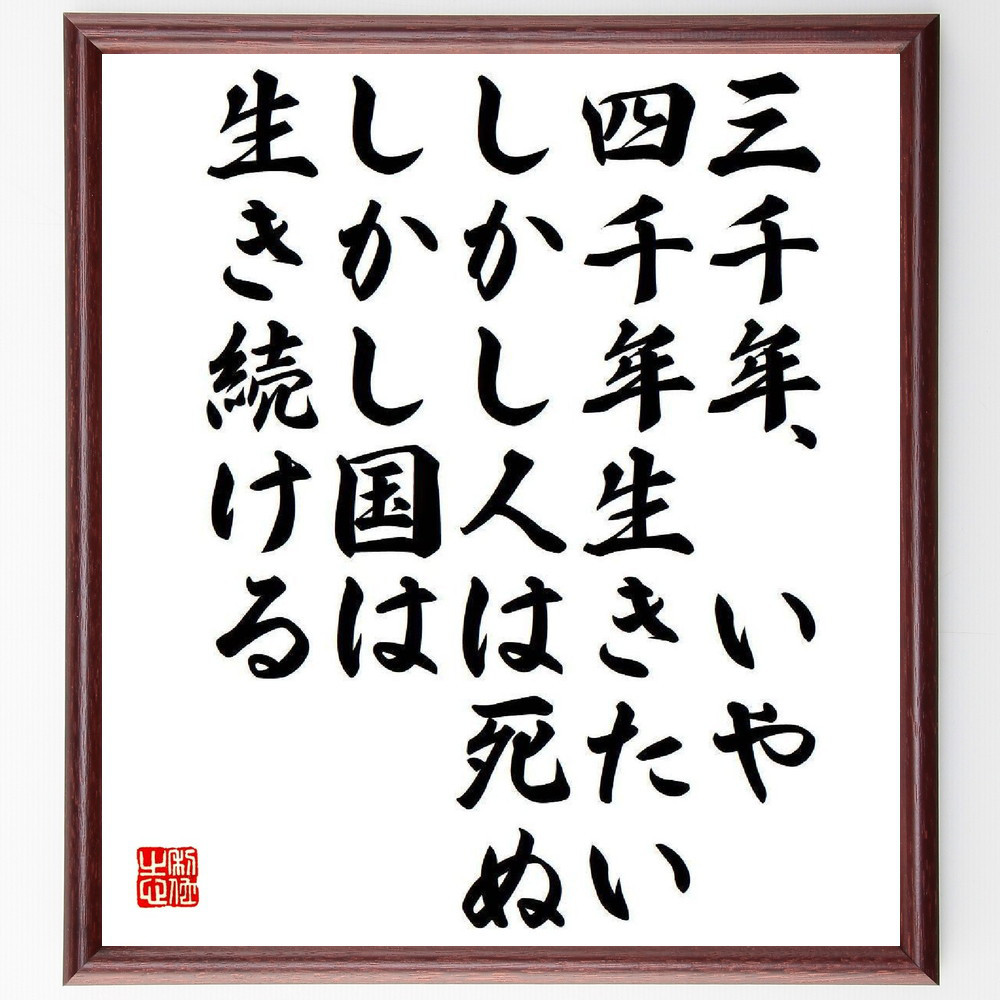 三千年、 いや
四千年生きたい
しかし人は死ぬ
しかし国は
生き続ける